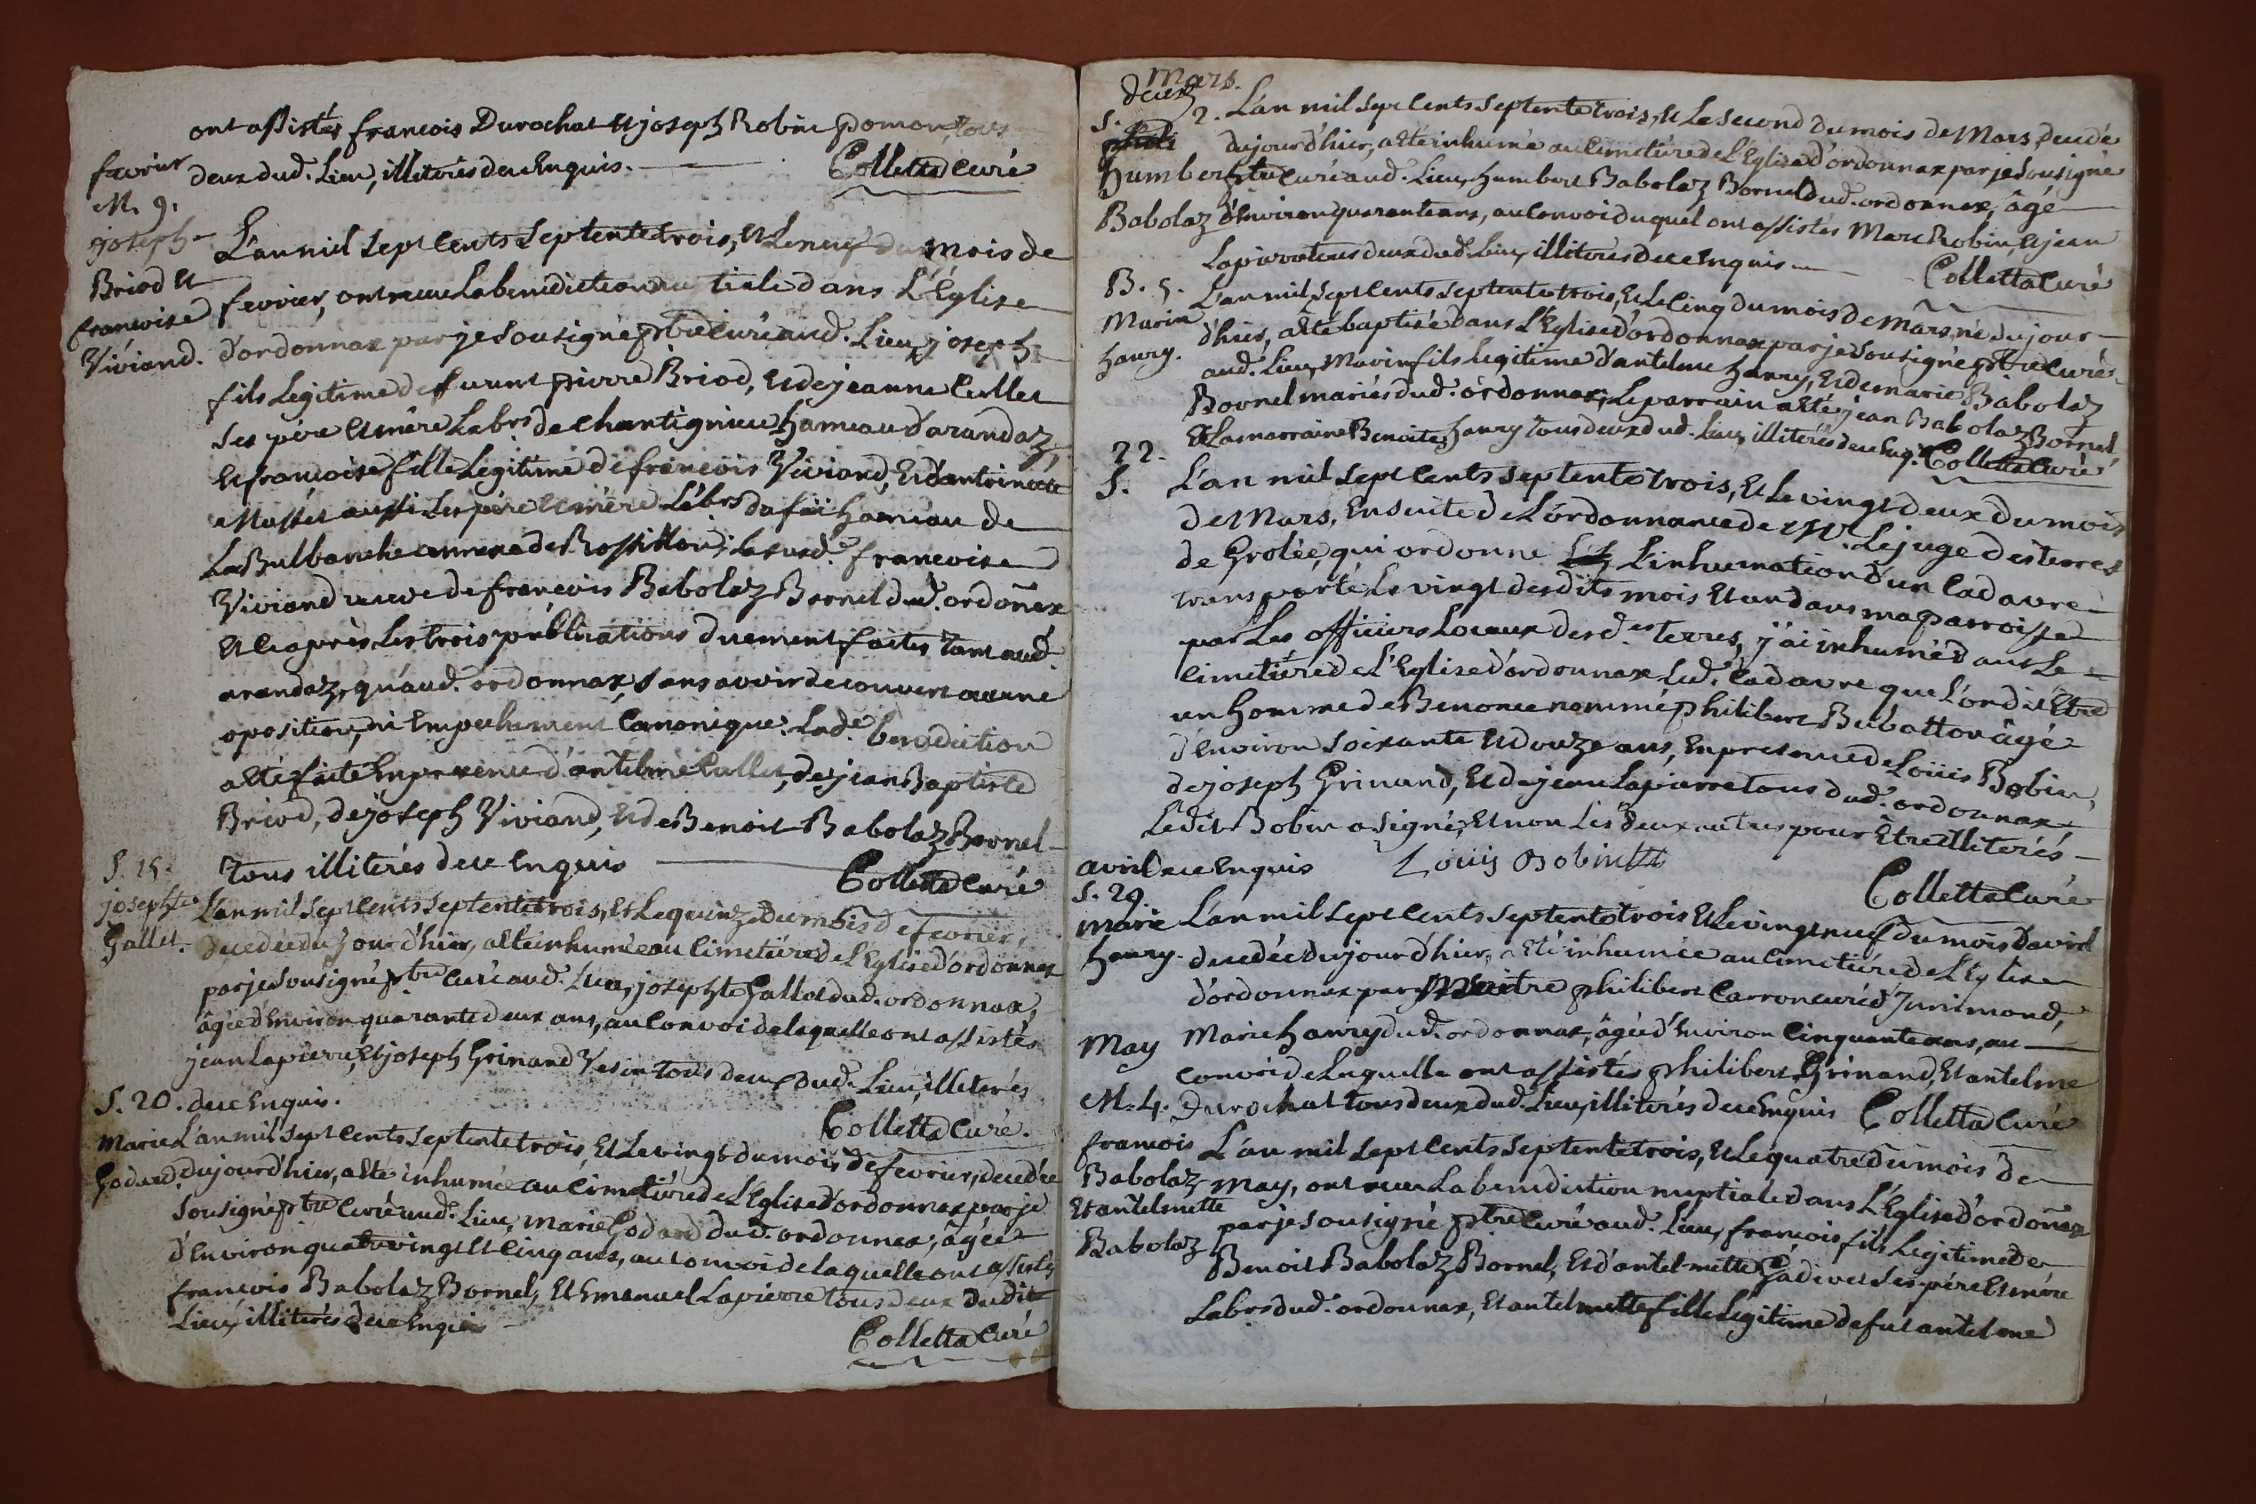 ont assistés francois Durochat et joseph Robin pomon, tous
deux dud. Lieu, illiterés de ce Enquis.
Colletta Curé
favrier
M. 9.
joseph
Briod et
francoise
Viviand.
L'an mil sept Cents septente trois, et Le neuf du mois de
fevrier, ont recu La benediction nuptiale dans L'Église
d'ordonnax par je sousigné ptre Curé aud. Lieu, joseph
fils Legitime de furent pierre Briod, et de jeanne Cullet
ses pére et mére Labrs de Chantignieu hameau d'arandaz,
et francoise fille Legitime de francois Viviand, et d'antoinette
Massét aussi ses pére et mére Labrs du faï hameau de
La Bulbanche annexe de Rossillon; La susd.e francoise
Viviand veuve de francois Babolaz Bornel dud. ordoñax
et Ce aprés Les trois publications duement faites tant aud.
arandaz, qu'aud. ordonnax, sans avoir decouvert aucune
oposition, ni Empechement Canonique. Lad.e benediction
a Eté faite En presence d'antelme Cullet, de jean Baptiste
Briod, de joseph Viviand, et de Benoit Babolaz Bornel
tous illiterés de ce Enquis
Colletta Curé
S. 15.
josephte
Gallet.
L'an mil sept Cents septente trois, et Le quinze du mois de fevrier,
decedée du jour d'hier, a Eté inhumée au Cimetiére de L'Eglise d'ordonnax
par je sousigné ptre Curé aud. Lieu, josephte Gallet dud. ordonnax,
âgée d'Environ quarante deux ans, au Convoi de laquelle ont assistés
jean Lapierre, et joseph Grinand Vesin tous deux dud. Lieu, illiterés
de ce Enquis.
Colletta Curé.
S. 20.
Marie
Godard.
L'an mil sept Cents septente trois, et Le vingt du mois de fevrier, decedée
du jour d'hier, a Eté inhumée au Cimetiére de L'Eglise d'ordonnax par je
sousigné ptre Curé aud. Lieu, marie Godard dud. ordonnax, âgée
d'Environ quatre vingt et Cinq ans, au Convoi de laquelle ont assistés
francois Babolaz Bornel, et Emanuel Lapierre tous deux dudit
Lieu, illiterés de ce Enquis
Colletta Curé
Mars.
deux
S. 2.
humbert
Babolaz
L'an mil sept Cents septente trois, et Le second du mois de Mars, decedé
du jour d'hier, a Eté inhumé au Cimetiére de L'Eglise d'ordonnax par je sousigné
ptre Curé aud. Lieu, humbert Babolaz Bornel dud. ordonnax, âgé
d'Environ quarante ans, au Convoi duquel ont assistés Marc Robin, et jean
Lapierre tous deux dud. Lieu, illiterés de ce Enquis
Colletta Curé
B. 5.
Marin
hanry.
L'an mil sept Cents septente trois, et Le Cinq du mois de Mars, né du jour
d'hier, a Eté baptisé dans L'Eglise d'ordonnax par je sousigné ptre Curé
aud. Lieu, Marin fils Legitime d'antelme hanry, et de marie Babolaz
Bornel mariés dud. ordonnax, Le parrain a Eté jean Babolaz Bornel,
et La marraine Benoite hanry tous deux dud. Lieu, illiterés de ce Enq.
Colletta Curé
22.
S.
L'an mil sept Cents septente trois, et Le vingt deux du mois
de Mars, En suite de L'ordonnance de Mr. Le juge des terres
de Grolée, qui ordonne L'inhumation d'un Cadavre
transporté Le vingt desdits mois et an dans ma parroisse
par Les officiers Locaux des d.es terres, j'ai inhumé dans Le
Cimetiére de L'Eglise d'ordonnax Led. Cadavre que L'on dit Etre
un homme de Benonce nommé philibert Bubatton âgé
d'Environ soixante et douze ans, En presence de Loüis Bobin,
de joseph Grinand, et de jean Lapierre tous dud. ordonnax
Ledit Bobin a signé, et non Les deux autres pour Etre illiterés
de ce Enquis
Louis Bobin
Colletta Curé
avril
S. 29.
marie
hanry.
L'an mil sept Cents septente trois et Le vingt neuf du mois d'avril
decedée du jour d'hier, a Eté inhumée au Cimetiére de L'Eglise
d'ordonnax par Maitre philibert Carron curé d'Innimond,
Marie hanry dud. ordonnax, âgée d'Environ Cinquante ans, au
Convoi de Laquelle ont assistés philibert Grinand, et antelme
Durochat tous deux dud. Lieu, illiterés de ce Enquis
Colletta Curé
May
M. 4.
francois
Babolaz
Et antelmette
Babolaz
L'an mil sept Cents septente trois, et Le quatre du mois de
may, ont recu La benediction nuptiale dans L'Eglise d'ordoñax
par je sousigné ptre Curé aud. Lieu, francois fils Legitime de
Benoit Babolaz Bornel, et d'antelmette Gadivet ses pére et mére
Labrs dud. ordonnax, et antelmette fille Legitime de fut antelme